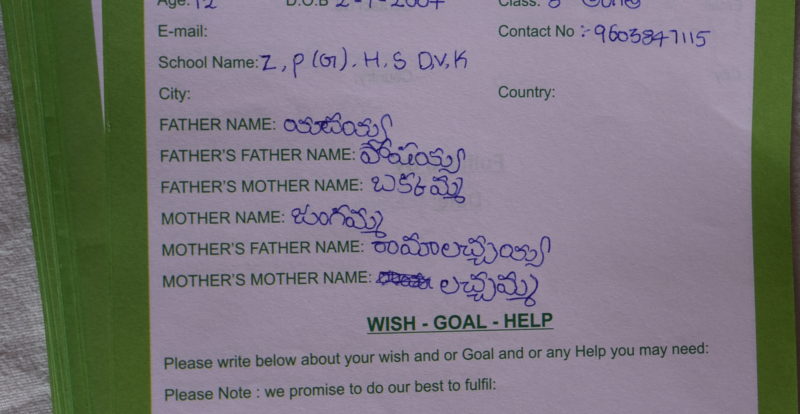 Age: 12 D.O.B 2-7-2007 Class: 8
E-mail: Contact No :- 9603847115
School Name: Z, P (G). H, S D,V, K
City: Country:
FATHER NAME: యాదయ్య
FATHER'S FATHER NAME: పోషయ్య
FATHER'S MOTHER NAME: బక్కమ్మ
MOTHER NAME: జంగమ్మ
MOTHER'S FATHER NAME: రామాలచ్చయ్య
MOTHER'S MOTHER NAME: లచ్చమ్మ
WISH - GOAL - HELP
Please write below about your wish and or Goal and or any Help you may need:
Please Note : we promise to do our best to fulfil: